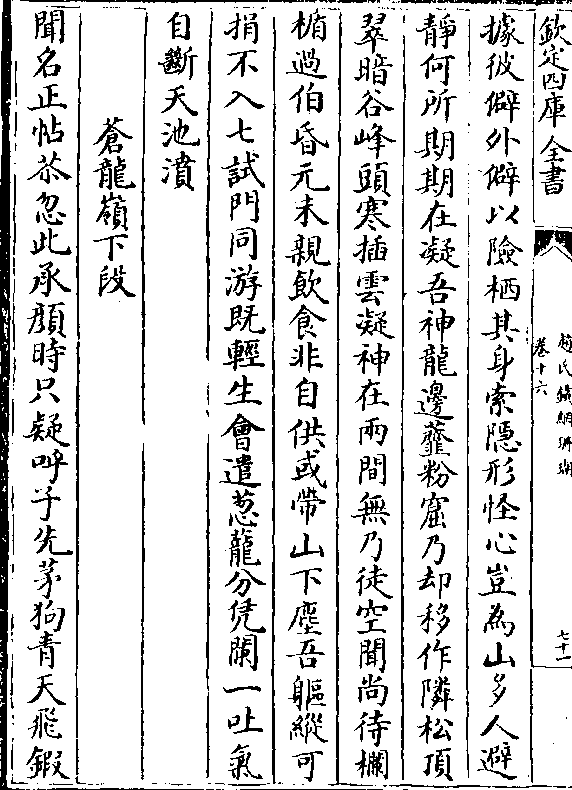 欽定四庫全書
趙氏鐵網珊瑚
卷十六
七十一
據彼僻外僻以險栖其身索隱形怪心豈為山多人避
靜何所期期在凝吾神龍邊虀粉窟乃却移作隣松頂
翠暗谷峰頭寒插雲凝神在兩間無乃徒空聞尚待欄
楯過伯昏元未親飲食非自供或帶山下塵吾軀縱可
捐不入七試門同游既輕生會遣葱龍分凭闌一吐氣
自斷天池濆
蒼龍嶺下段
聞名正怗恭忽此承顔時只疑呼子先茅狗青天飛鍜